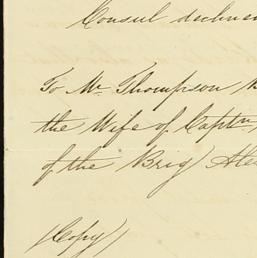 Consul
To Mr. Thompson,
the Wife of Captn.
of the Brig
(Copy)